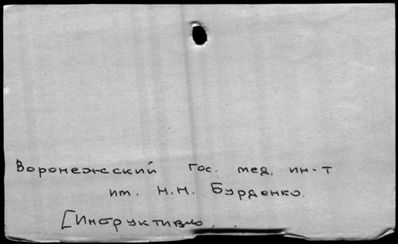 Воронежский гос. мед. ин-т
им. Н.Н. Бурденко.
[Инструктивно...